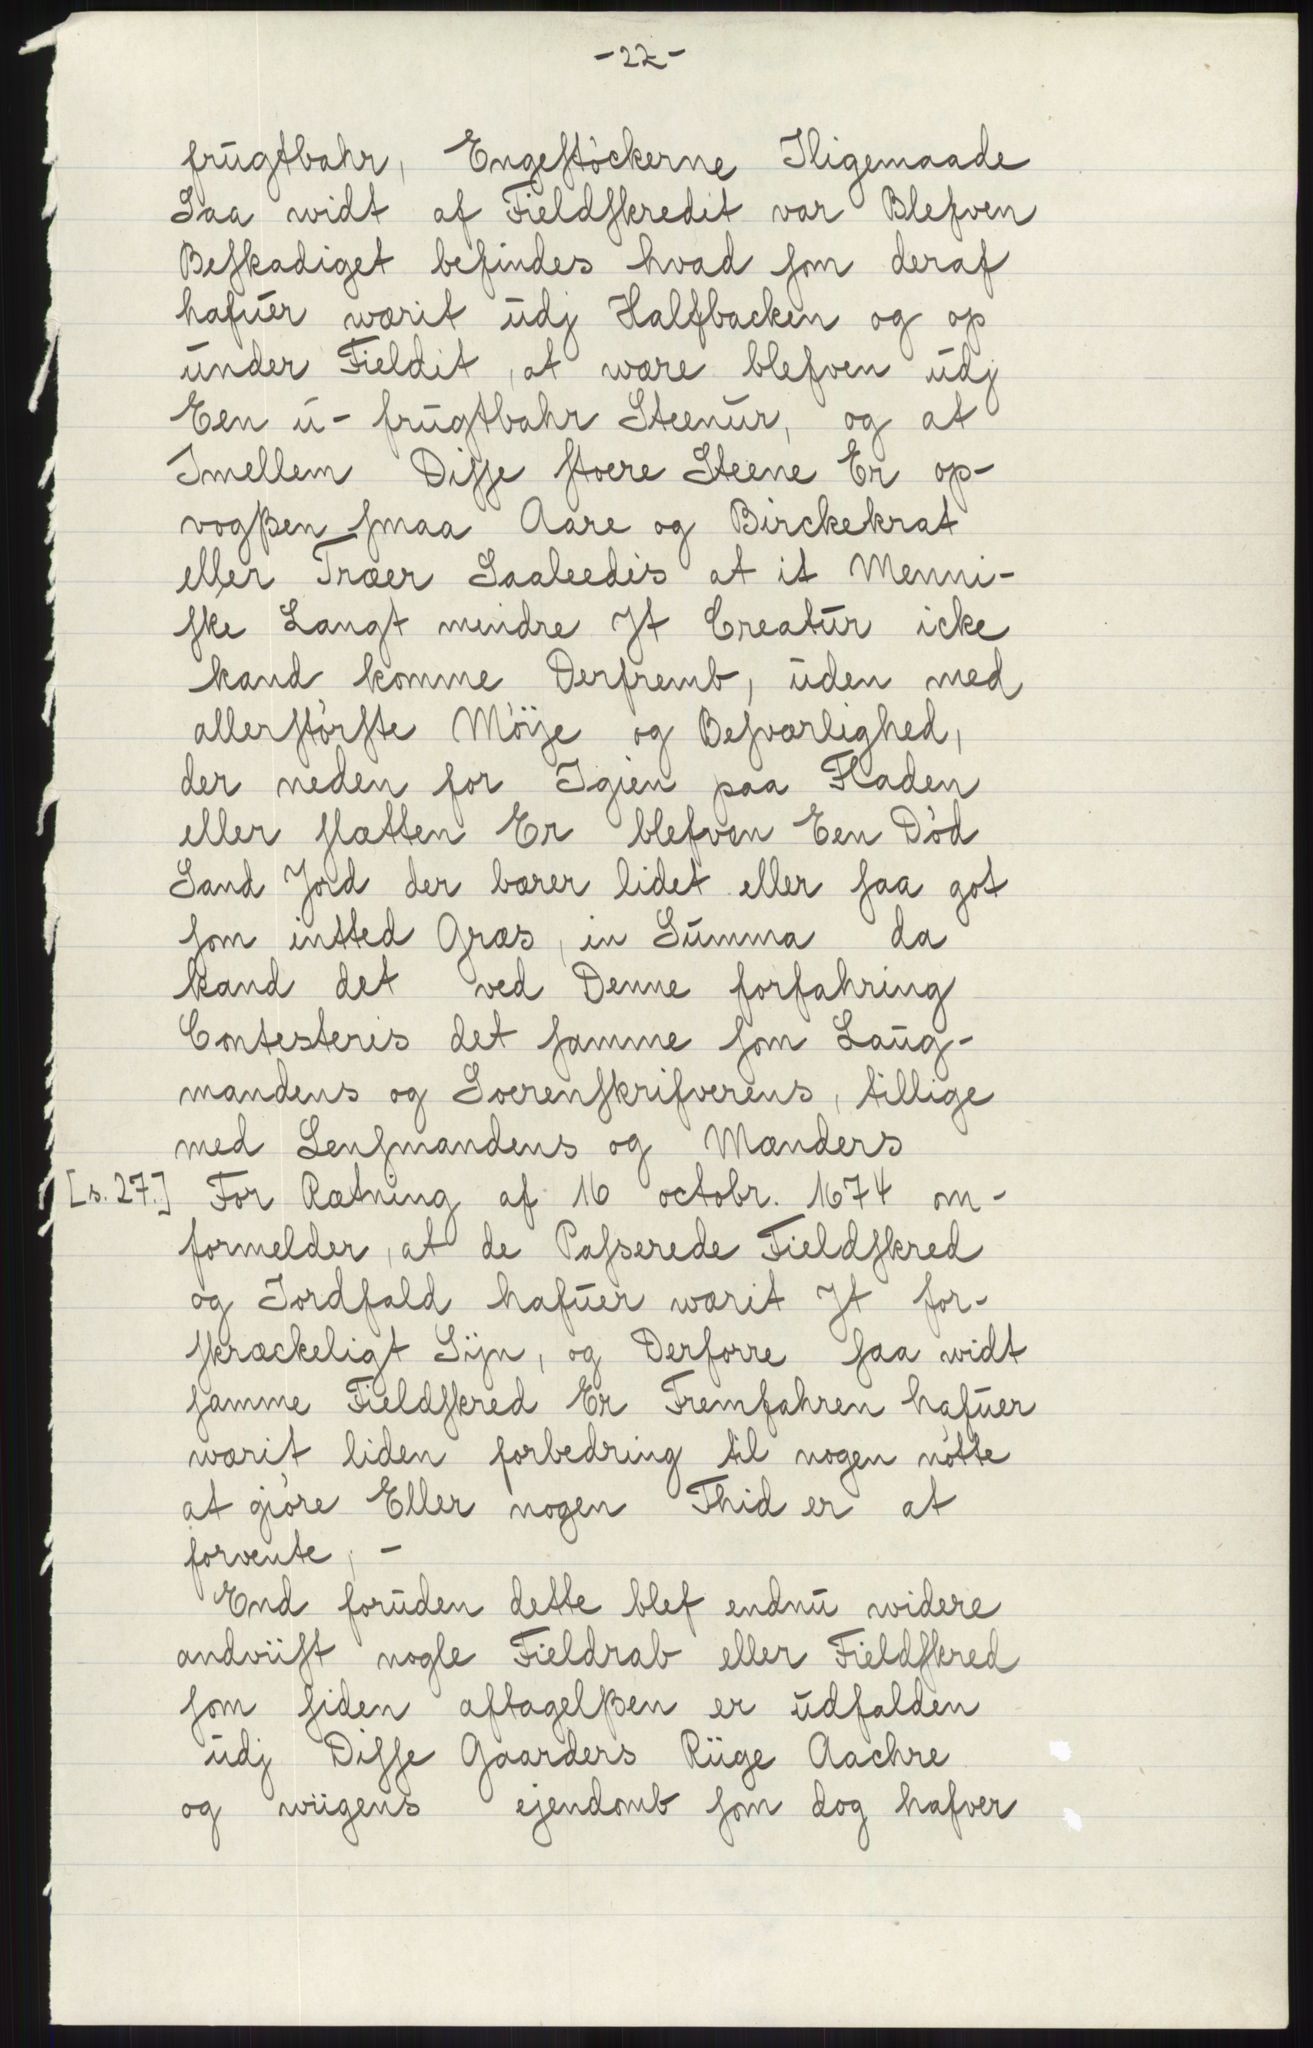 -22-
frugtbahr, Engestöckerne Iligemaade
Saa widt af Fieldskredit var Blefven
Beskadiget befindes hvad som deraf
hafuer wærit udj Halfbacken og op
under Fieldit, at wære blefven udj
Een u- frugtbahr Steenur, og at
Imellem Disse stoere Steene Er op-
vogßen smaa Aare og Birckekrat
eller Træer Saaleedis at it Menni-
ske Langt mindre It Creatur icke
kand komme Derfremb, uden med
allerstörste Möye og Besværlighed,
der neden for Igien paa Fladen
eller slætten Er blefven Een Död
Sand Jord der bærer lidet eller saa got
som intted Græs, in Summa da
kand det ved Denne forfahring
Contesteris det samme som Laug-
mandens og Soerenskrifverens, tillige
med Lensmandens og Mænders
[s. 27.] For Rætning af 16 octobr. 1674 om-
formelder, at de Passerede Fieldskred
og Jordfald hafuer wærit It for-
skræckeligt Sijn, og Derforre saa widt
samme Fieldskred Er Fremfahren hafuer
wærit liden forbedring til nogen nötte
at giöre Eller nogen Thid er at
forvente, -
End foruden dette blef endnu widere
andviist nogle Fieldrab eller Fieldskred
som siden aftagelßen er udfalden
udj Disse Gaarders Riige Aachre
og wiigens ejendomb som dog hafver